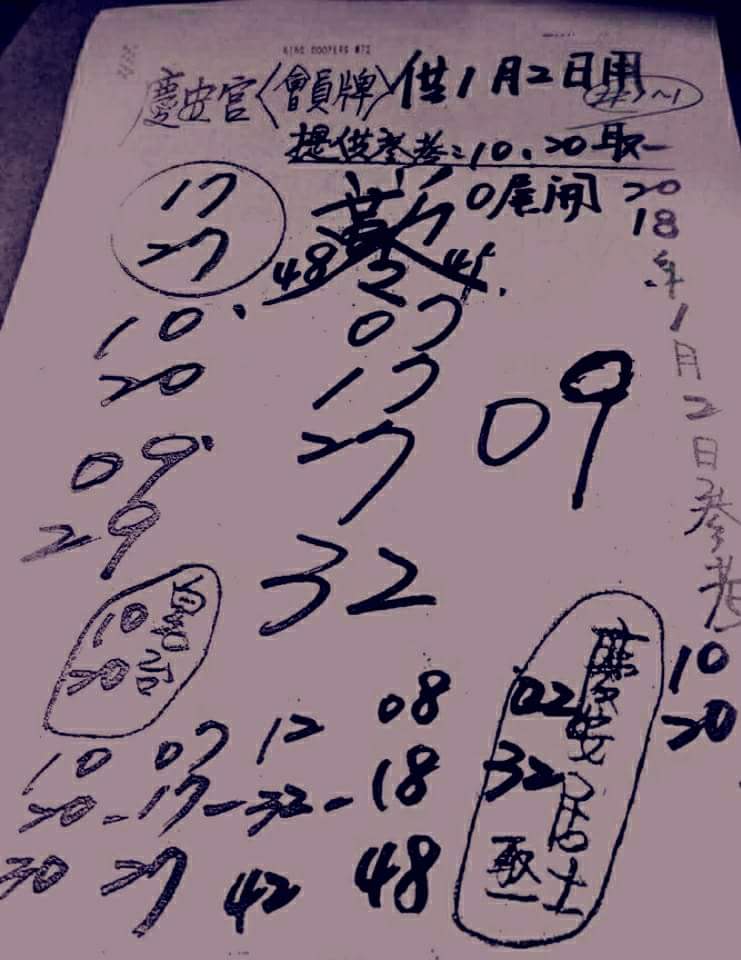 慶安宮〈會員牌〉供1月2日用
提供參考:10、20取一
17
27
0尾開
48 2 45
10
20
09
29
07
17
27
32
09
2018年1月2日參考
10
20
10
20
10 07 12 08
20-17-32-18
30 27 42 48
慶安居士
02
32
取一